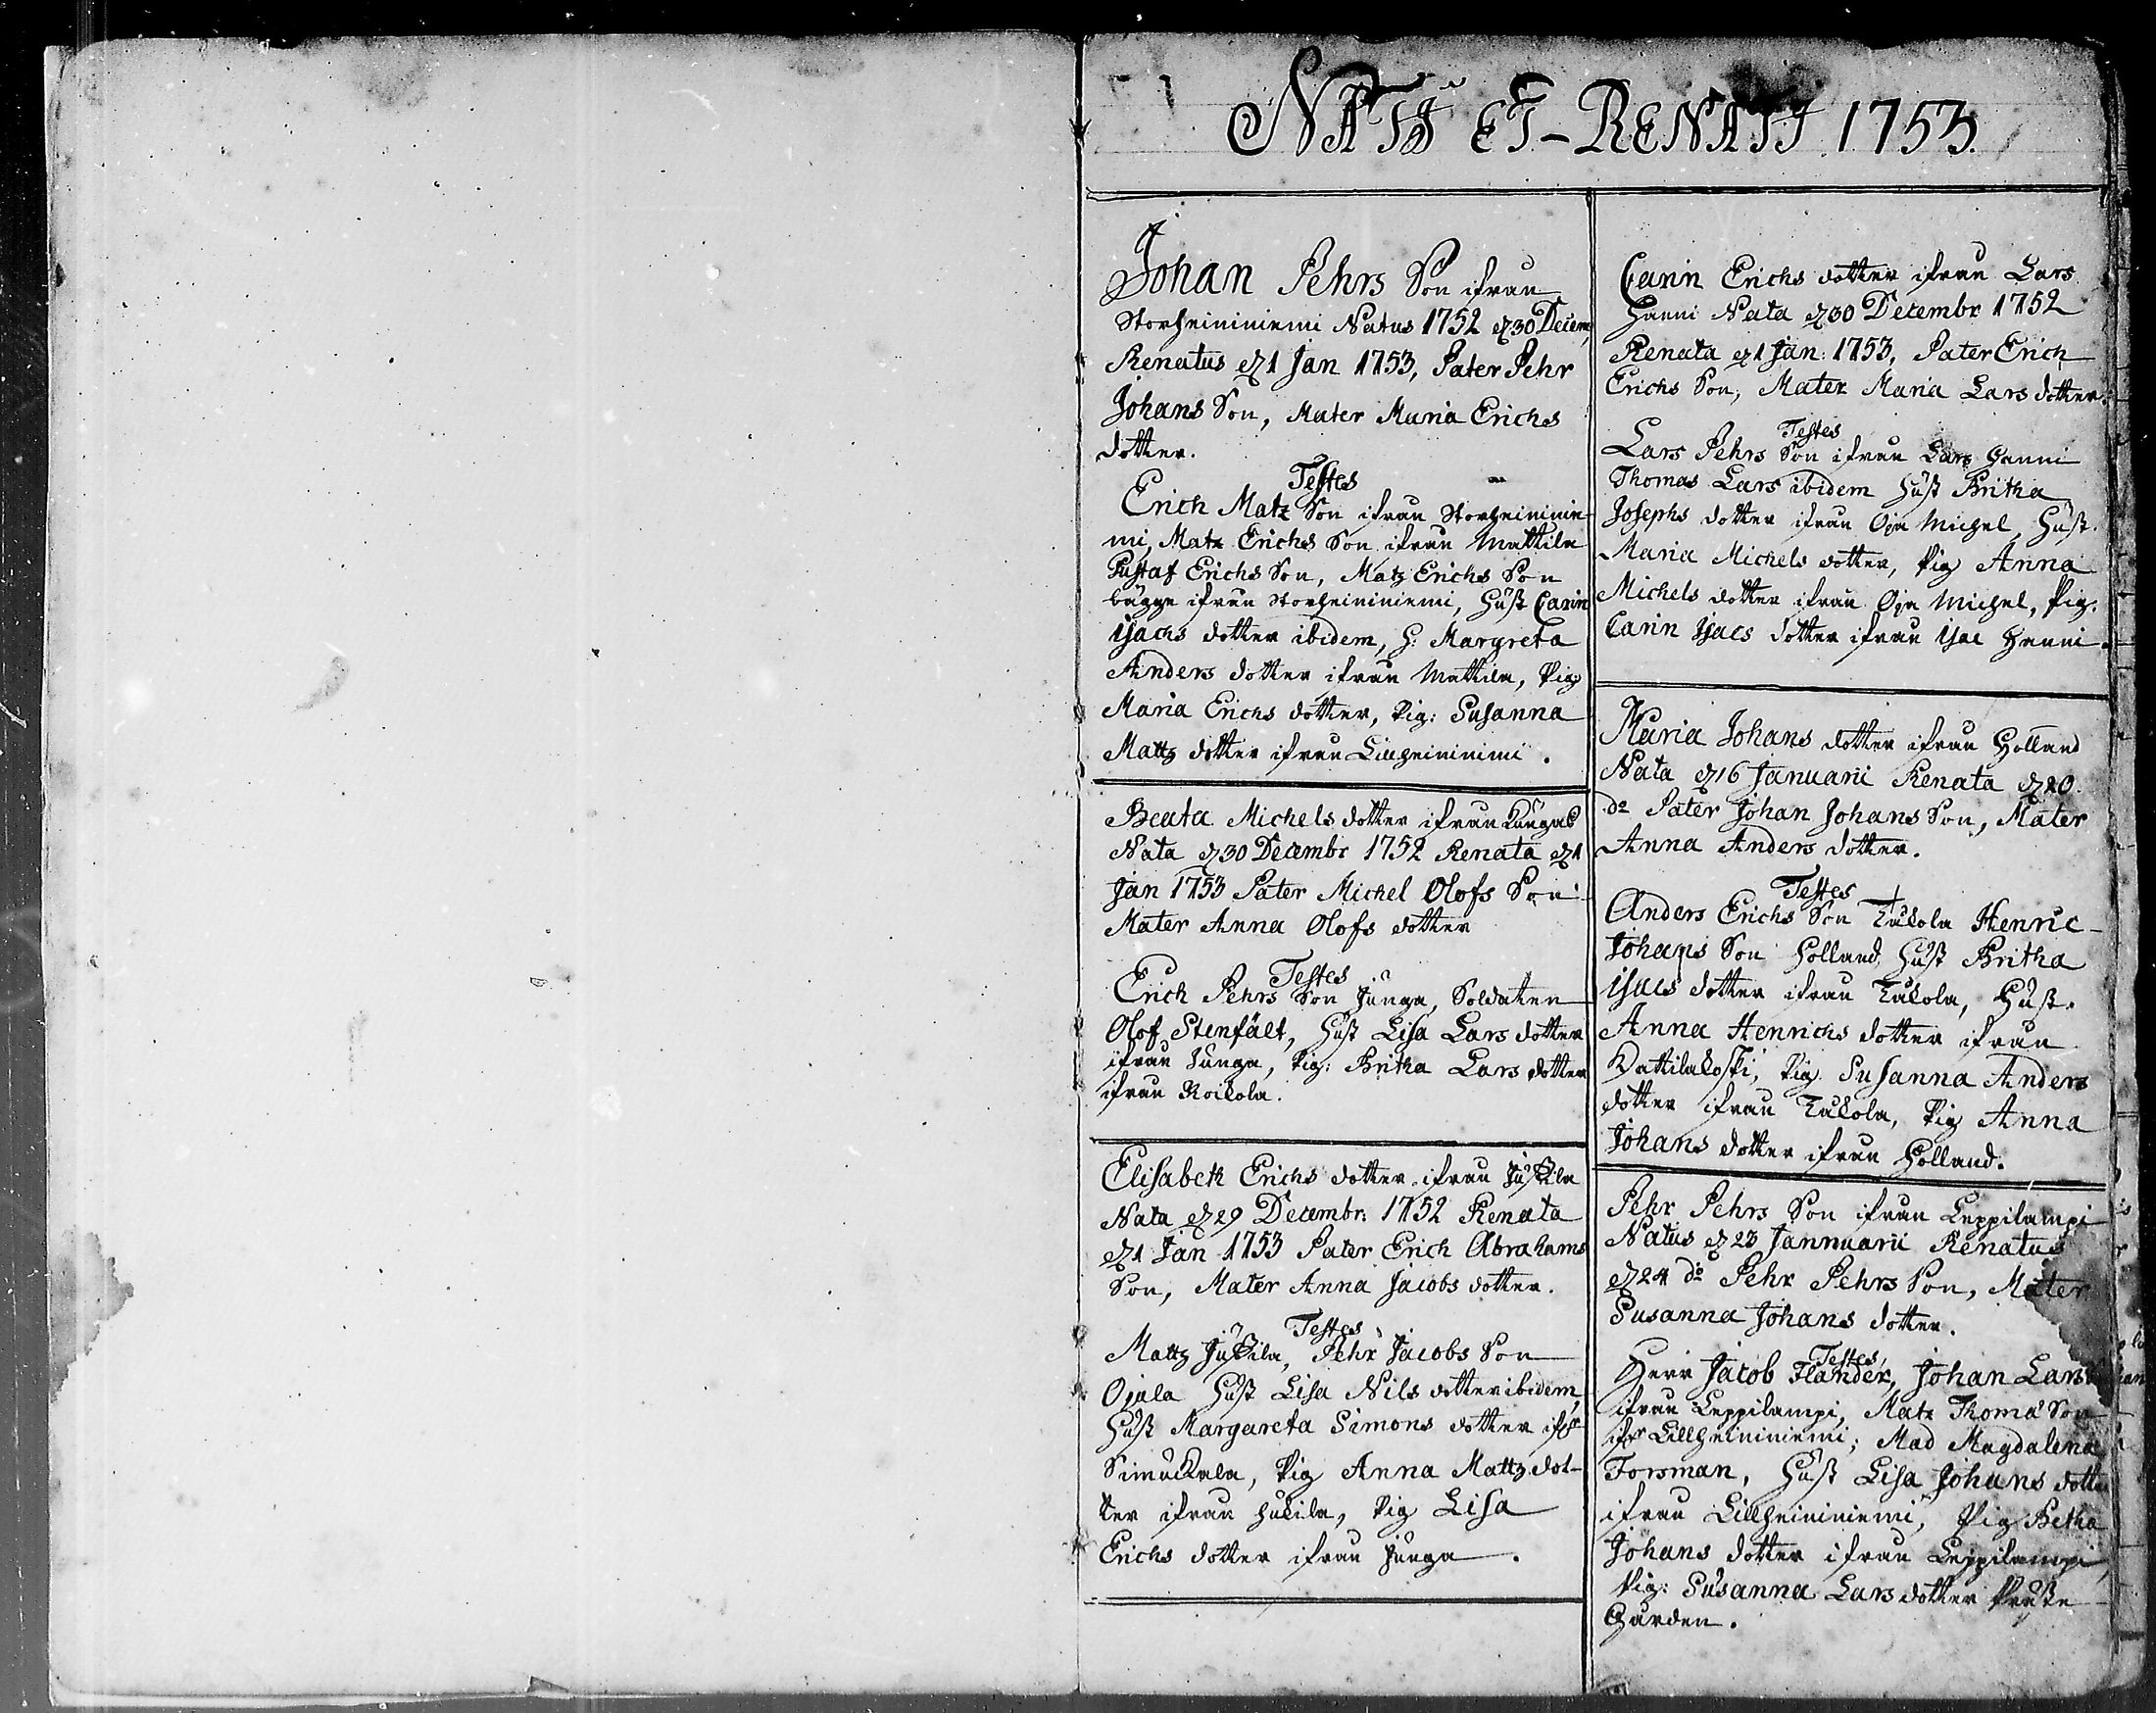 NATI ET-RENATI 1753.
Johan Pehrs Son ifrån
Storheininiemi Natus 1752 d 30 Decem,
Renatus d 1 Jan 1753, Pater Pehr
Johans Son, Mater Maria Erichs
dotter.
Testes
Erich Matz Son ifrån Storheininie
mi, Matz Erichs Son ifrån Mattila
Gustaf Erichs Son, Matz Erichs Son
bägge ifrån Storheininiemi, Hust Carin
Isachs dotter ibidem, H: Margreta
Anders dotter ifrån Mattila, Pig
Maria Erichs dotter, Pig: Susanna
Mattz dotter ifrån Lillheininimi.
Beata Michels dotter ifrån
Nata d 30 Decembr 1752 Renata d 1
Jan 1753 Pater Michel Olofs Son
Mater Anna Olofs dotter
Testes
Erich Pehrs Son Junga, Soldaten
Olof Stenfält, Hust Lisa Lars dotter
ifrån Junga, Pig: Britha Lars dotter
ifrån Koikola.
Elisabeth Erichs dotter ifrån Juckila
Nata d 29 Decembr: 1752 Renata
d 1 Jan 1753 Pater Erich Abrahams
Son, Mater Anna Jacobs dotter.
Testes
Mattz Juckila, Pehr Jacobs Son
Ojala Hust Lisa Nils dotter ibidem,
Hust Margareta Simons dotter ifr
Simuckala, Pig Anna Mattz dot-
ter ifrån Hukila, Pig Lisa
Erichs dotter ifrån Junga.
Carin Erichs dotter ifrån Lars
Hanni Nata d 30 Decembr 1752
Renata d 1 Jan: 1753, Pater Erich
Erichs Son, Mater Maria Lars dotter.
Testes
Lars Pehrs Son ifrån Lars Hanni
Thomas Lars ibidem Hust Britha
Josephs dotter ifrån Oja Michel, Hust.
Maria Michels dotter, Pig Anna
Michels dotter ifrån Oja Michel, Pig.
Carin Isacs dotter ifrån Isac Hanni.
Maria Johans dotter ifrån Holland
Nata d 16 Januarii Renata d 20
do Pater Johan Johans Son, Mater
Anna Anders dotter.
Testes
Anders Erichs Son Kukola Henric
Johans Son Holland Hust Britha
Isacs dotter ifrån Kukola, Hust.
Anna Henrichs dotter ifrån
Pig. Susanna Anders
dotter ifrån Kukola, Pig Anna
Johans dotter ifrån Holland.
Pehr Pehrs Son ifrån Leppilampi
Natus d 23 Jannuarii Renatus
d 24 do Pehr Pehrs Son, Mater
Susanna Johans dotter.
Testes
Herr Jacob Flander, Johan Lars
ifrån Leppilampi, Matz Thoma Son
ifr Lillheininiemi; Mad Magdalena
Forsman, Hust Lisa Johans dotte
ifrån Lillheininiemi, Pig Betha
Johans dotter ifrån Leppilampi,
Pig: Susanna Lars dotter Preste
Gården.